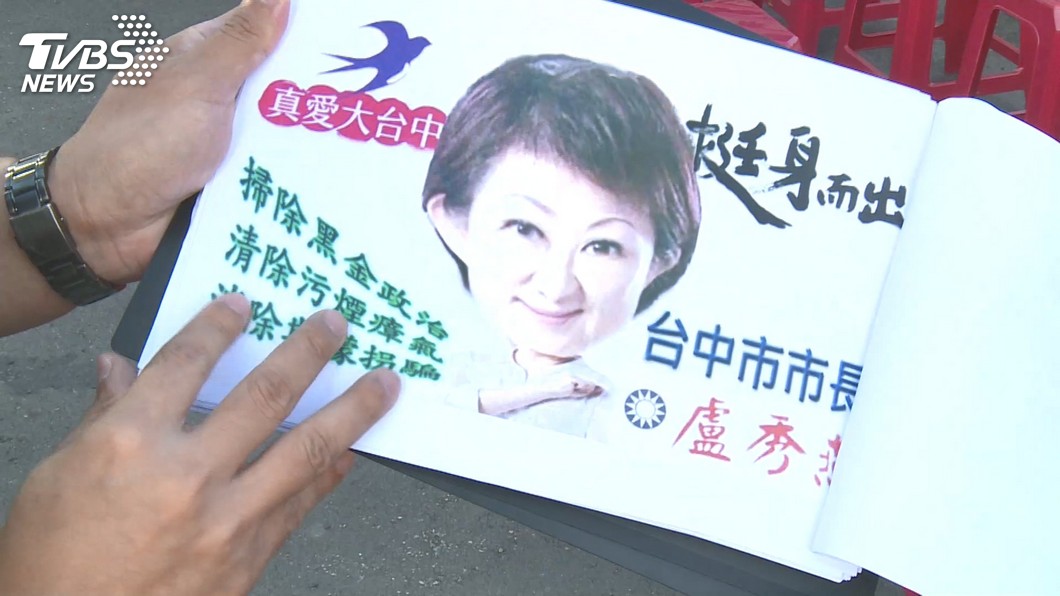 TVBS
NEWS
真愛大台中
挺身而出
掃除黑金政治
清除污煙瘴氣
除 拐騙
台中市市長
盧秀燕